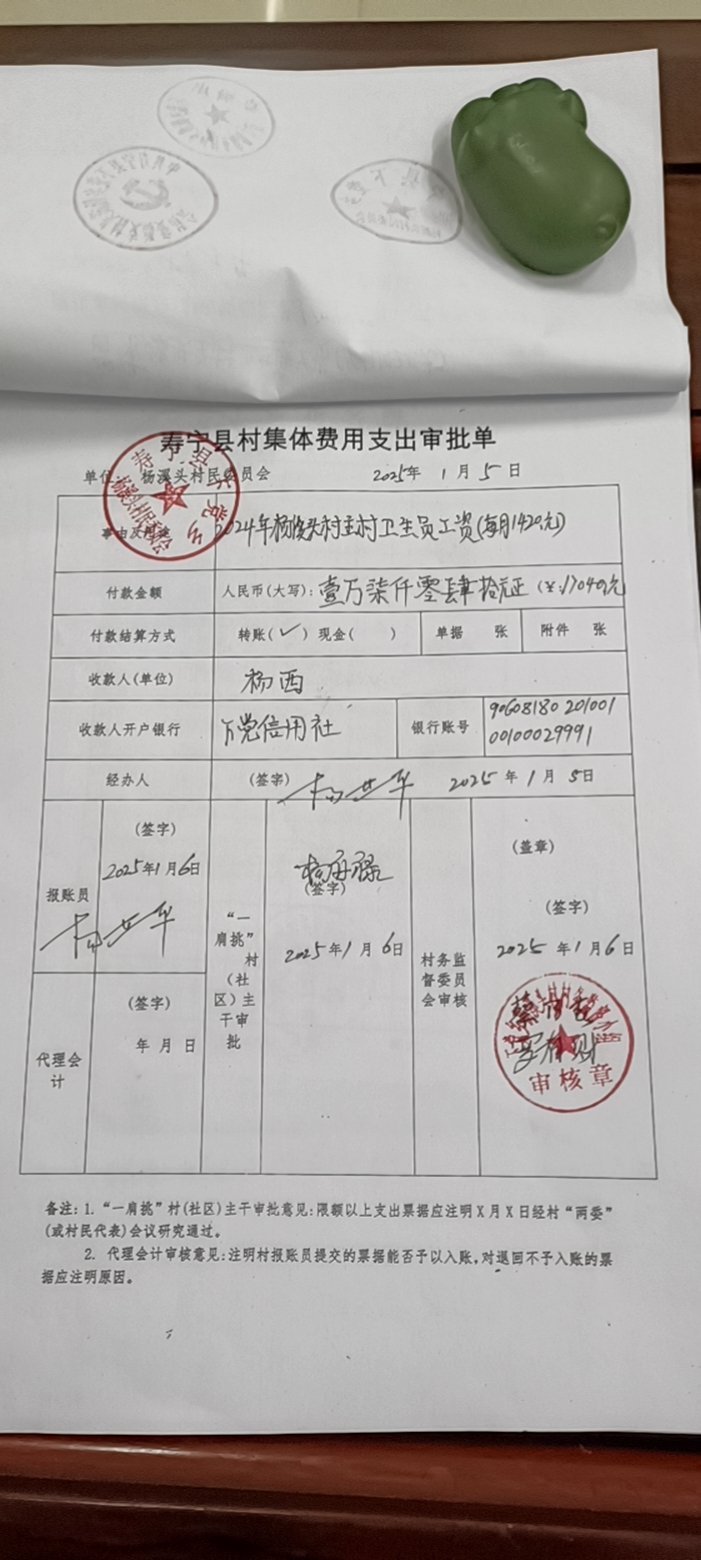 寿宁县村集体费用支出审批单
单位：杨溪头村民委员会 2025年 1月 5日
事由及用途 2024年杨溪头村主村卫生员工资(每月1420元)
付款金额 人民币(大写)：壹万柒仟零肆拾元正 (￥:17040元
付款结算方式 转账(✓) 现金( ) 单据 张 附件 张
收款人(单位) 杨西
收款人开户银行 下党信用社 银行账号 90608180 201001
00100029991
经办人 (签字) 2025年 1月 5日
报账员 (签字)
2025年1月6日
代理会计 (签字)
年 月 日
“一肩挑”村(社区)主干审批
(签字)
2025年1月6日
村务监督委员会审核
(盖章)
(签字)
2025年1月6日
审核章
备注：1.“一肩挑”村(社区)主干审批意见：限额以上支出票据应注明X月X日经村“两委”
(或村民代表)会议研究通过。
2. 代理会计审核意见：注明村报账员提交的票据能否予以入账，对退回不予入账的票
据应注明原因。